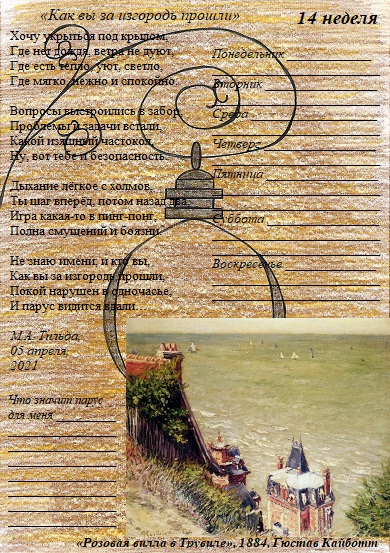 «Как вы за изгородь прошли»
14 неделя
Хочу укрыться под крышом,
Где нет дождя, ветра не дуют,
Где есть тепло, уют, светло,
Где мягко, нежно и спокойно.
Вопросы выстроились в забор,
Проблемы и задачи встали,
Какой изящный частокол,
Ну, вот тебе и безопасность.
Дыхание лёгкое с холмов,
Ты шаг вперёд, потом назад два,
Игра какая-то в пинг-понг,
Полна смущений и боязни.
Не знаю имени, и кто вы,
Как вы за изгородь прошли,
Покой нарушен в одночасье,
И парус видится вдали.
М.А. Тильда,
05 апреля,
2021
Что значит парус
для меня
Понедельник
Вторник
Среда
Четверг
Пятница
Суббота
Воскресенье
«Розовая вилла в Трувиле», 1884, Гюстав Кайботт